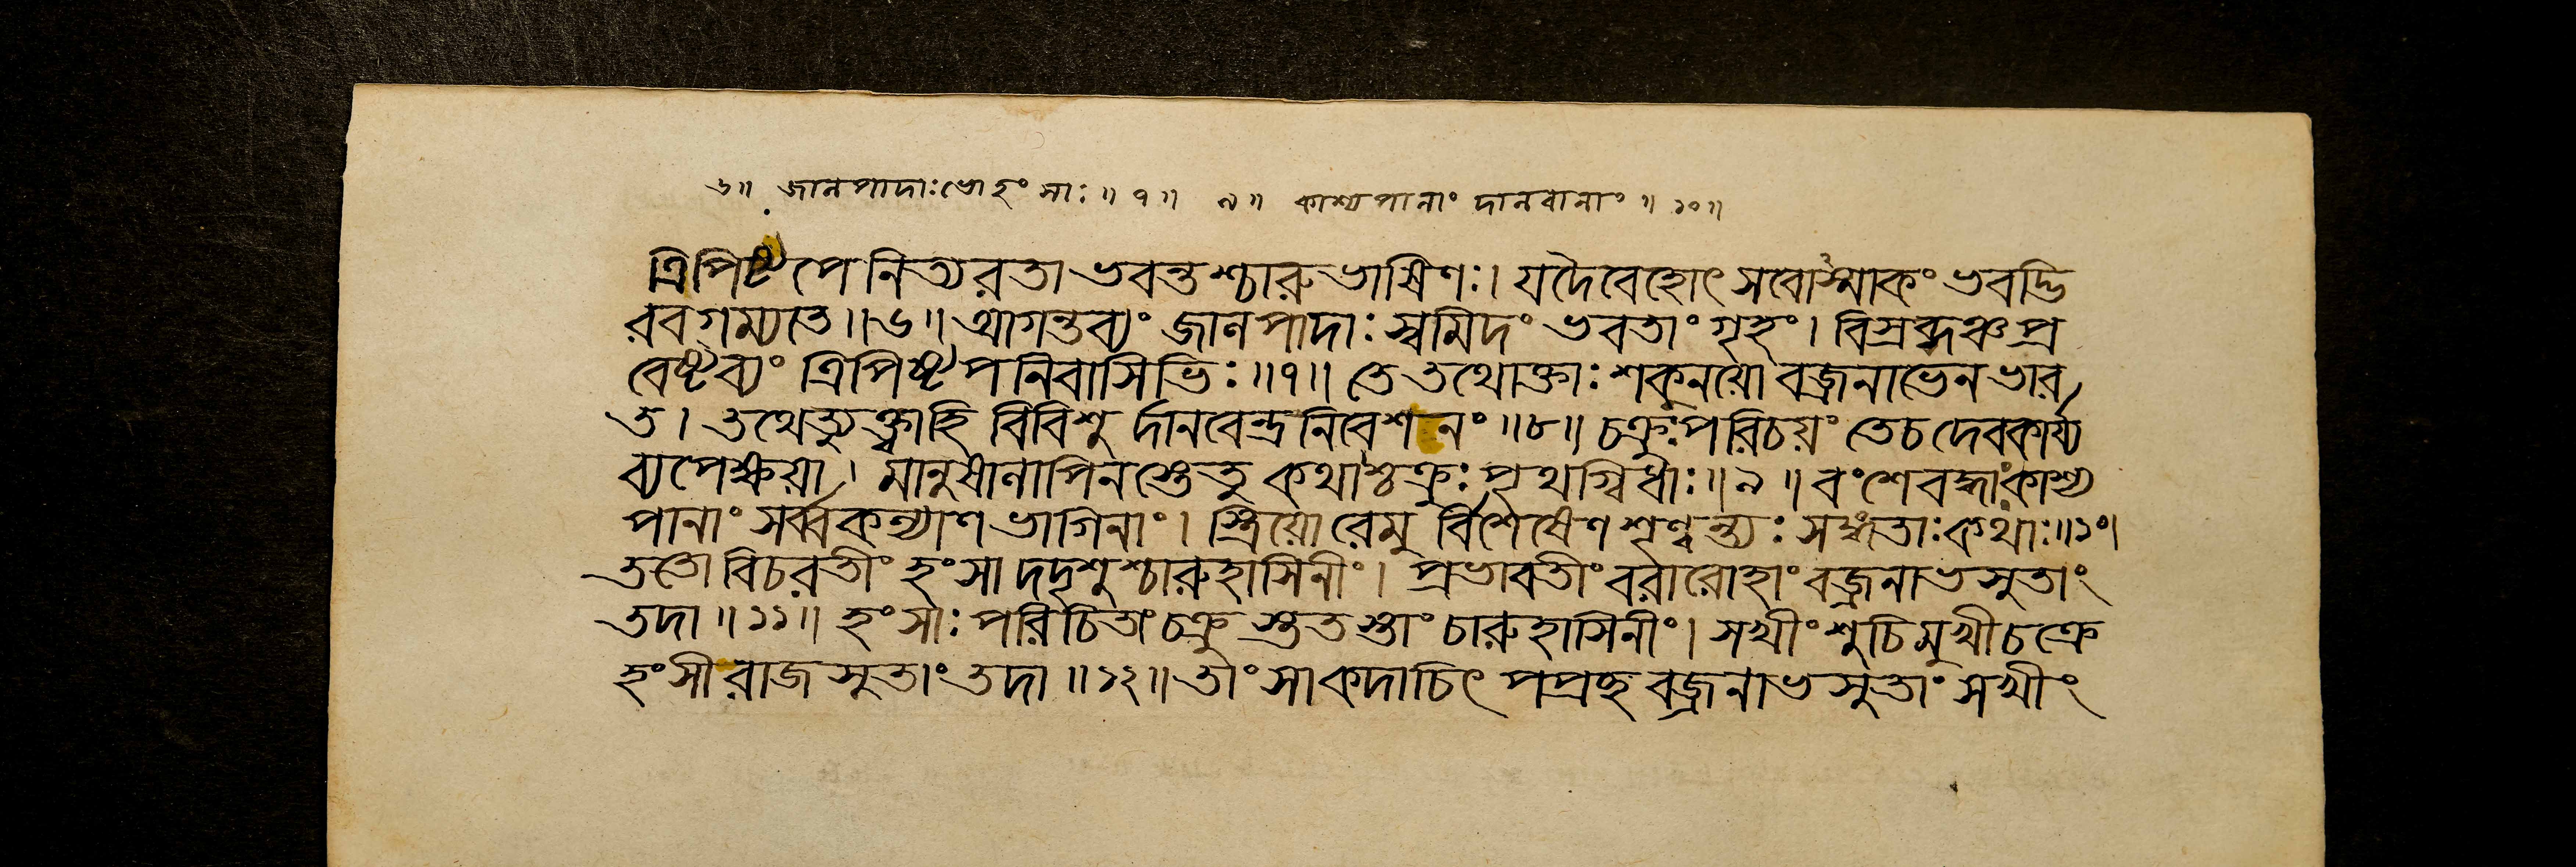 ৬॥ জানপাদাঃ ভো হংসাঃ॥ ৭॥ ৯॥ কাশ্যপানাং দানবানাং॥ ১০॥
ত্রিপিষ্টপে নিত্যরতা ভবন্তশ্চারুভাষিণঃ। যদৈবেহোৎসবোস্মাকং ভবদ্ভি
রবগম্যতে॥৬॥ আগন্তব্যং জানপাদাঃ স্বমিদং ভবতাং গৃহং। বিস্রব্ধঞ্চ প্র
বেষ্টব্যং ত্রিপিষ্টপনিবাসিভিঃ॥৭॥ তে তথোক্তাঃ শকুনয়ো বজ্রনাভেন ভার
ত। তথেত্যুক্ত্বা হি বিবিশু র্দানবেন্দ্রনিবেশনং॥৮॥ চক্রুঃ পরিচয়ং তে চ দেবকার্য্য
ব্যপেক্ষয়া। মানুষানাপিনস্তে তু কথাশ্চক্রুঃ পৃথগ্বিধাঃ॥৯॥ বংশে বদ্ধাঃ কাশ্য
পানাং সর্ব্বকল্যাণভাগিনাং। স্ত্রিয়ো রেমু র্বিশেষেণ শৃণ্বন্ত্যঃ সঙ্গতাঃ কথাঃ॥১০।
ততো বিচরতীং হংসা দদৃশুশ্চারুহাসিনীং। প্রভাবতীং বরারোহাং বজ্রনাভসুতাং
তদা॥১১॥ হংসাঃ পরিচিতাং চক্রু স্তুতস্তাং চারুহাসিনীং। সখীং শুচিমুখী চক্রে
হংসী রাজসুতাং তদা॥১২॥ তাং সা কদাচিৎ পপ্রচ্ছ বজ্রনাভসুতাং সখীং